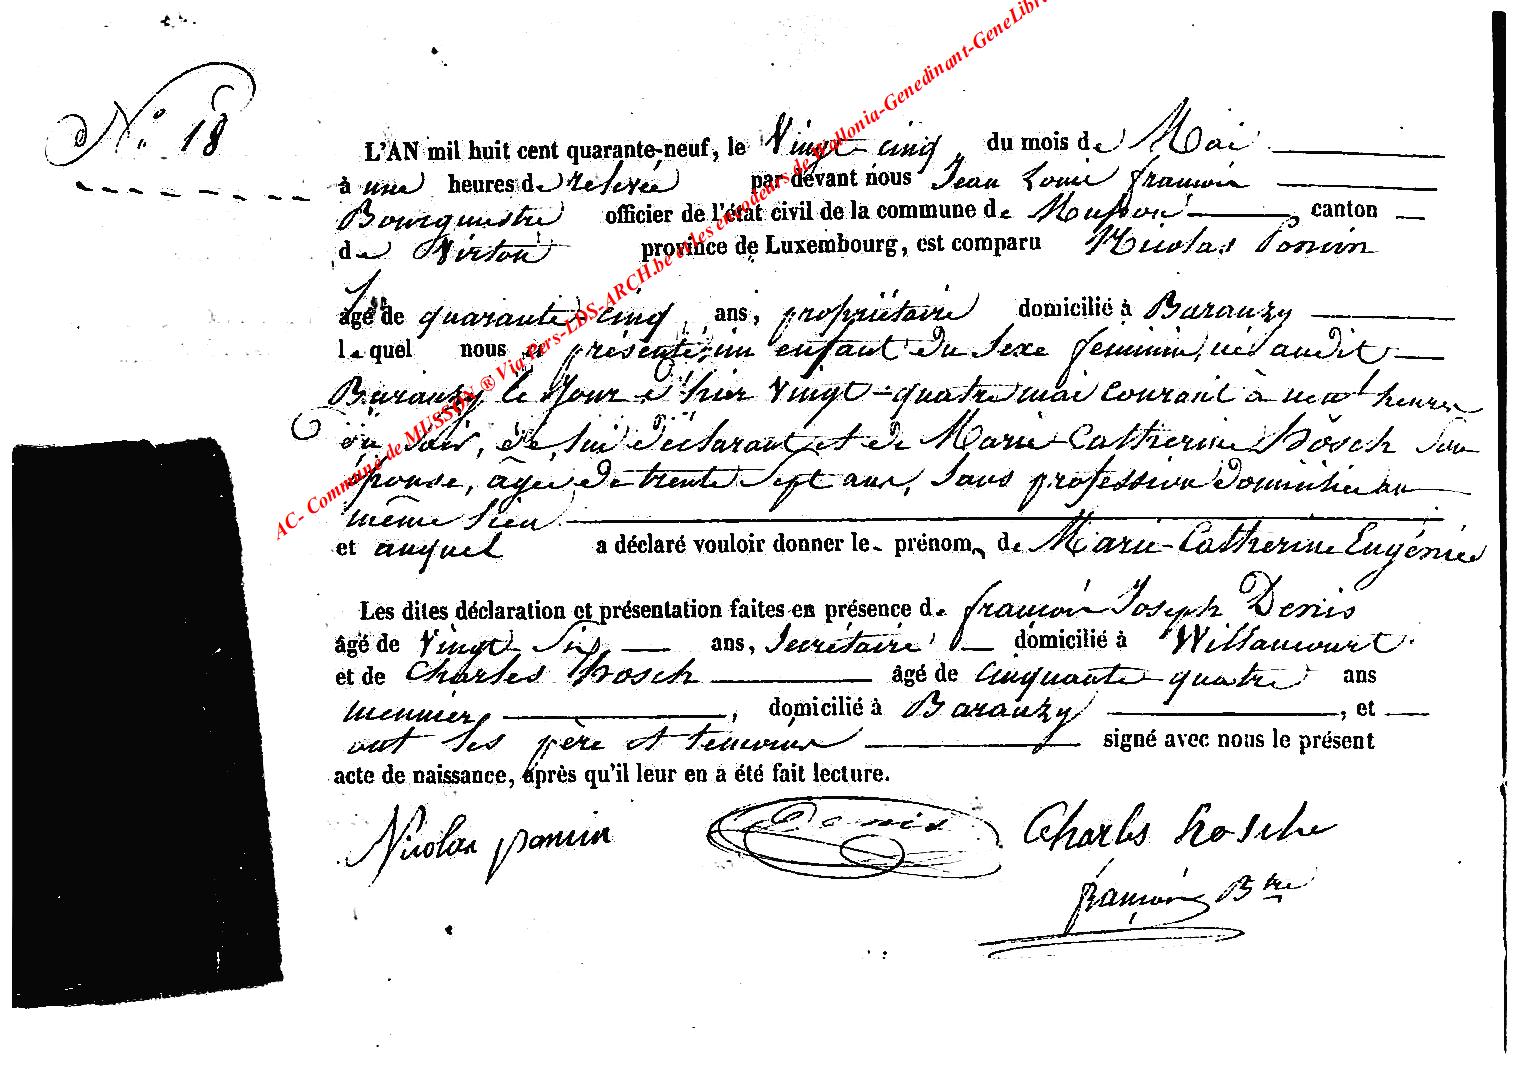 N.° 18
L'AN mil huit cent quarante-neuf, le Vingt-cinq du mois de Mai
à une heures de relevée par devant nous Jean Louis françois
Bourgmestre officier de l'état civil de la commune de Musson canton
de Virton province de Luxembourg, est comparu Nicolas Ponsin
âgé de quarante-cinq ans, propriétaire domicilié à Baranzy
lequel nous a présenté, un enfant du sexe féminin, né audit
Baranzy, le jour d'hier vingt-quatre mai courant à neuf heures
du soir, de lui déclarant et de Marie-Catherine Hosch son
épouse, âgée de trente sept ans, sans profession domiciliée au
même lieu
et auquel a déclaré vouloir donner le prénom de Marie-Catherine Eugénie
Les dites déclaration et présentation faites en présence de françois Joseph Denis
âgé de Vingt-Six ans, Secrétaire domicilié à Willancourt
et de Charles Hosch âgé de cinquante-quatre ans
meunier, domicilié à Baranzy, et
ont les père et témoins signé avec nous le présent
acte de naissance, après qu'il leur en a été fait lecture.
Nicolas ponsin Denis Charles hosche
françois B^tre
AC- Commune de MUSSON ® Via Pers-LDS-ARCH.be et les encodeurs de Wallonia-Genedinant-GeneLibr